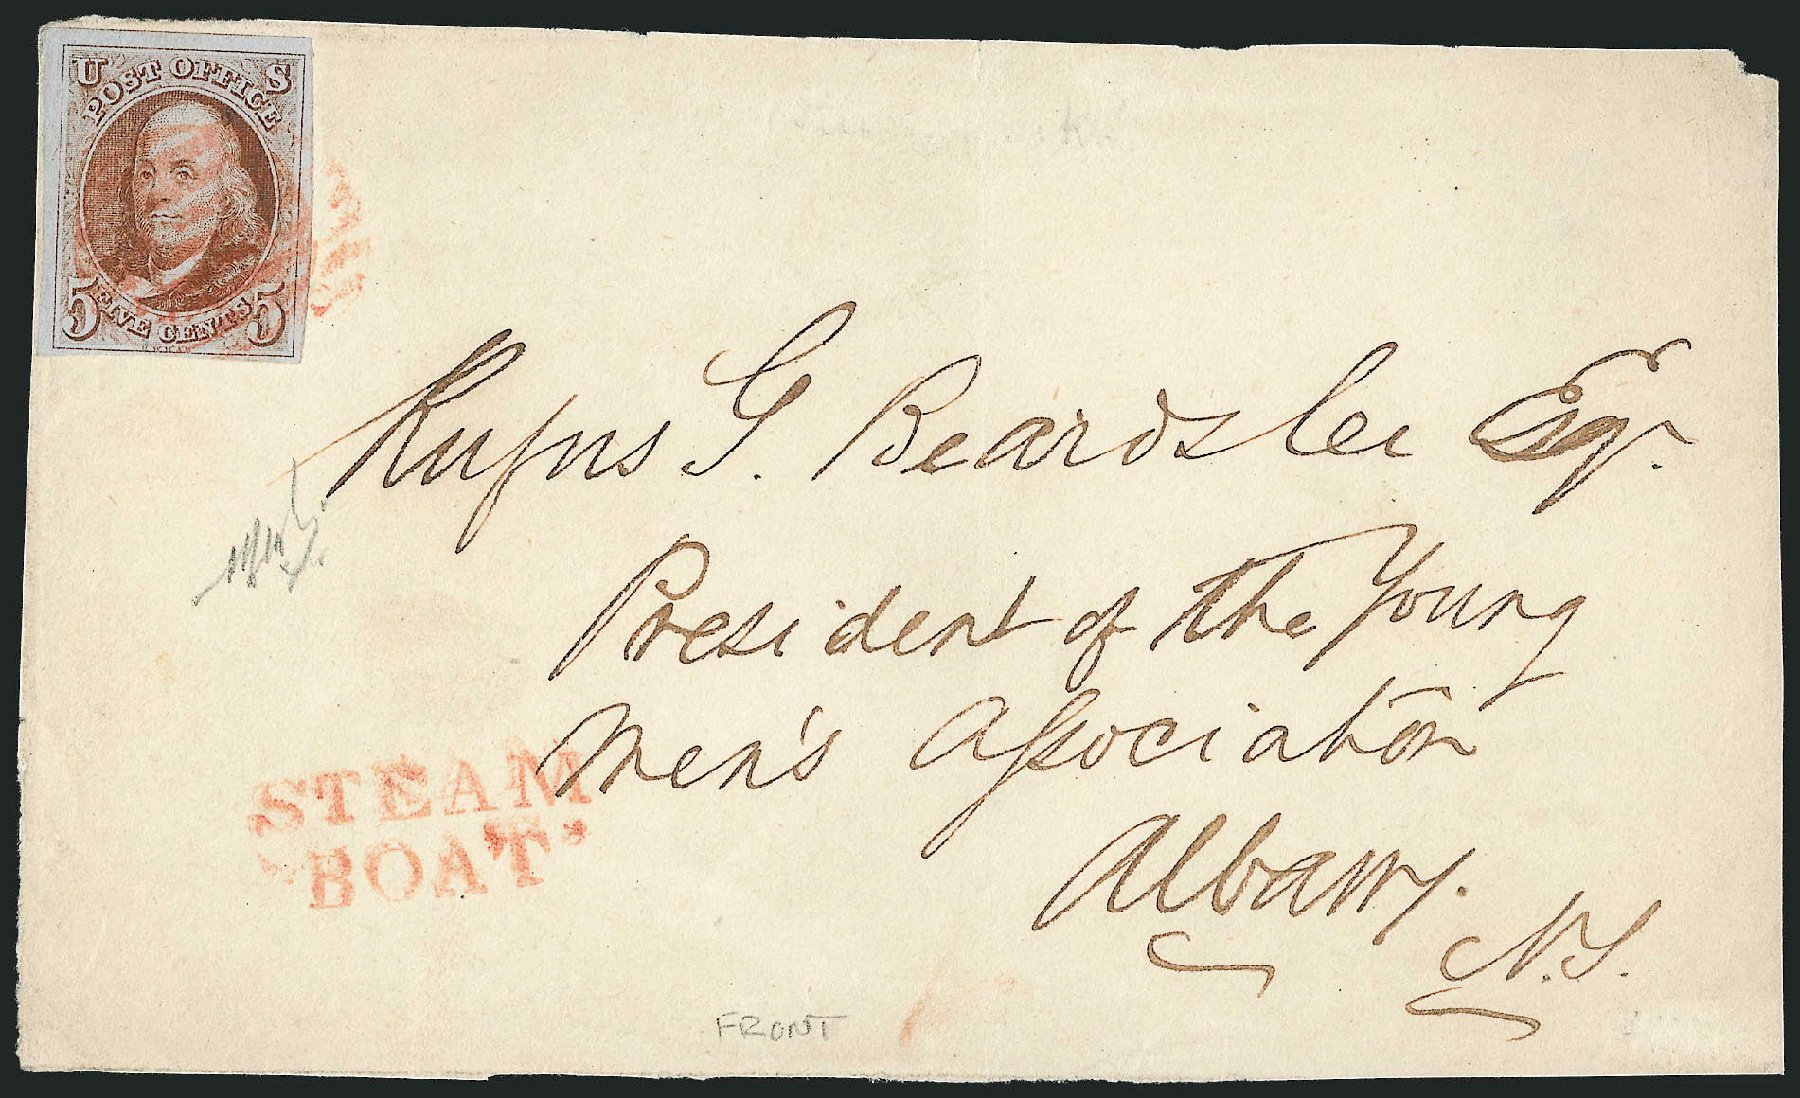 U S
POST OFFICE
5 FIVE CENTS 5
Rufus G. Beardslee Esqr.
President of the Young
Men's Association
Albany.
N.Y.
STEAM
BOAT
FRONT